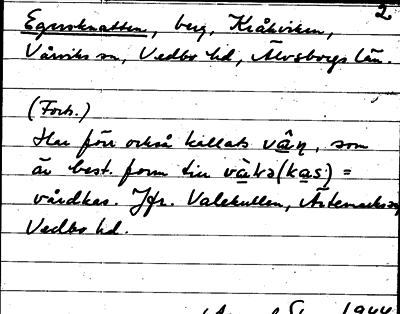 2
Egersknatten, berg, Kråkviken,
Vårviks sn, Vedbo hd, Älvsborgs län.
(Forts.)
Har förr också kallats vân, som
är best. form till vàkə(kas) =
vårdkas. Jfr. Valekullen, Ärtemarks sn
Vedbo hd.
1944